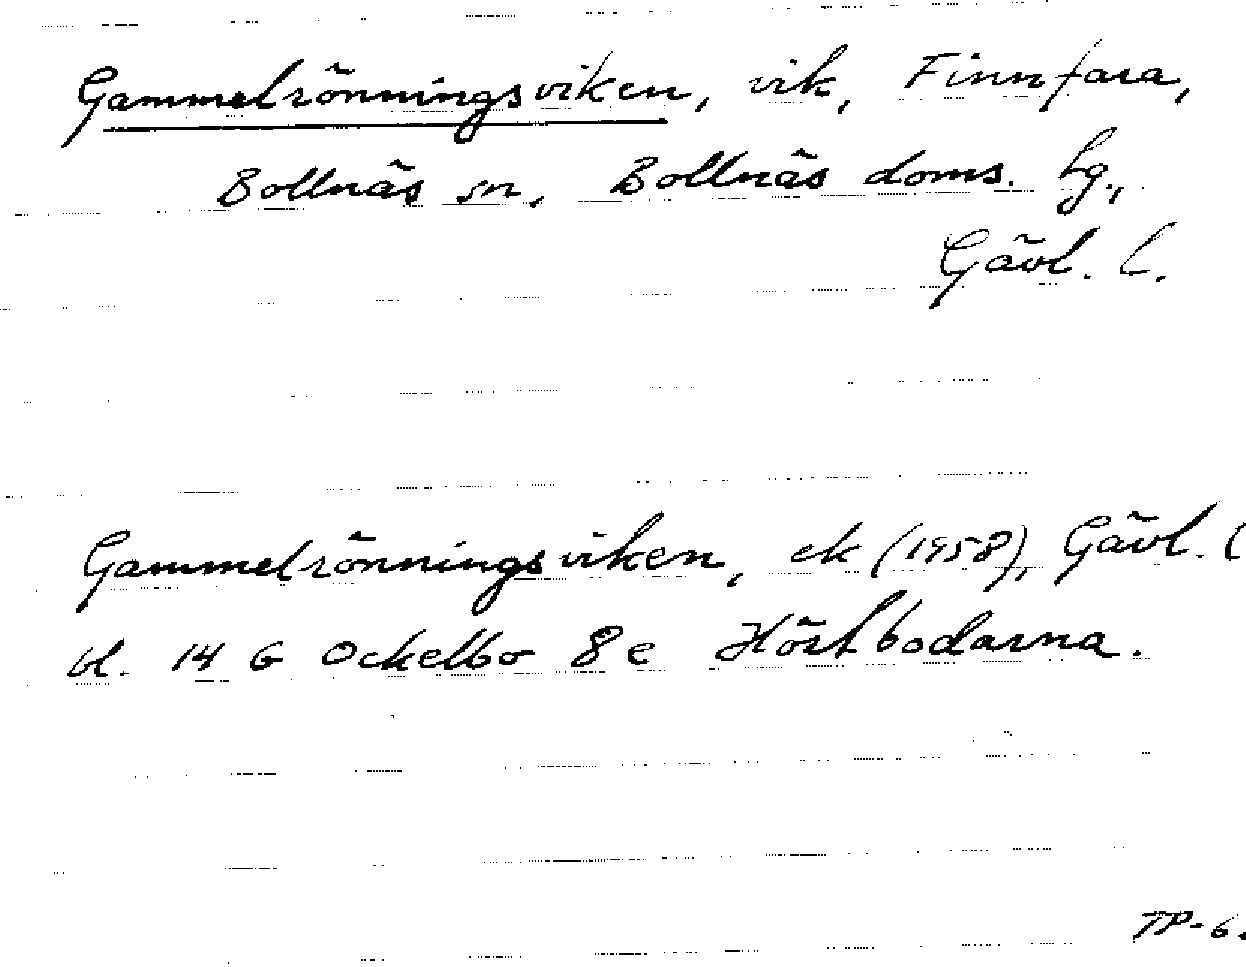 Gammelrönningsviken, vik, Finnfara,
Bollnäs sn, Bollnäs doms. hg.,
Gävl. l.
Gammelrönningsviken, ek (1958), Gävl. l
bl. 14 G Ockelbo 8 e Hörtbodarna.
TP-6.